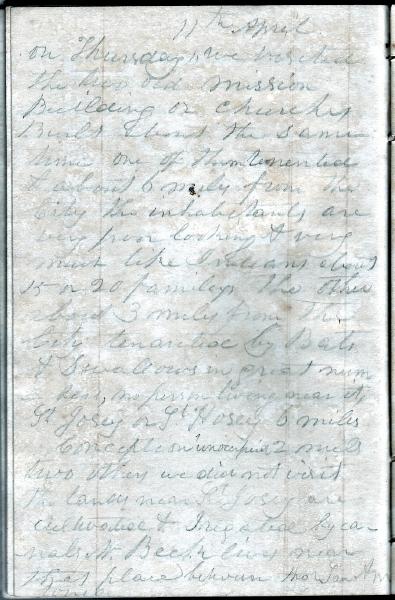 11th April
on Thursday we visited
the two old mission
Building or churches
Built about the same
time one of them tenented
& about 6 miles from the
City the inhabitants are
very poor looking & very
much like Indians about
15 or 20 familys the other
about 3 miles from the
City tenanted by Bats
& Swallows in great num
bers, no person living near it
St Josey or St Hosey 6 miles
Conception unocupied 2 miles
two others we did not visit
the lands near St Josey are
cultivated & Irigated by ca
nals Mr Beck lives near
that place between the